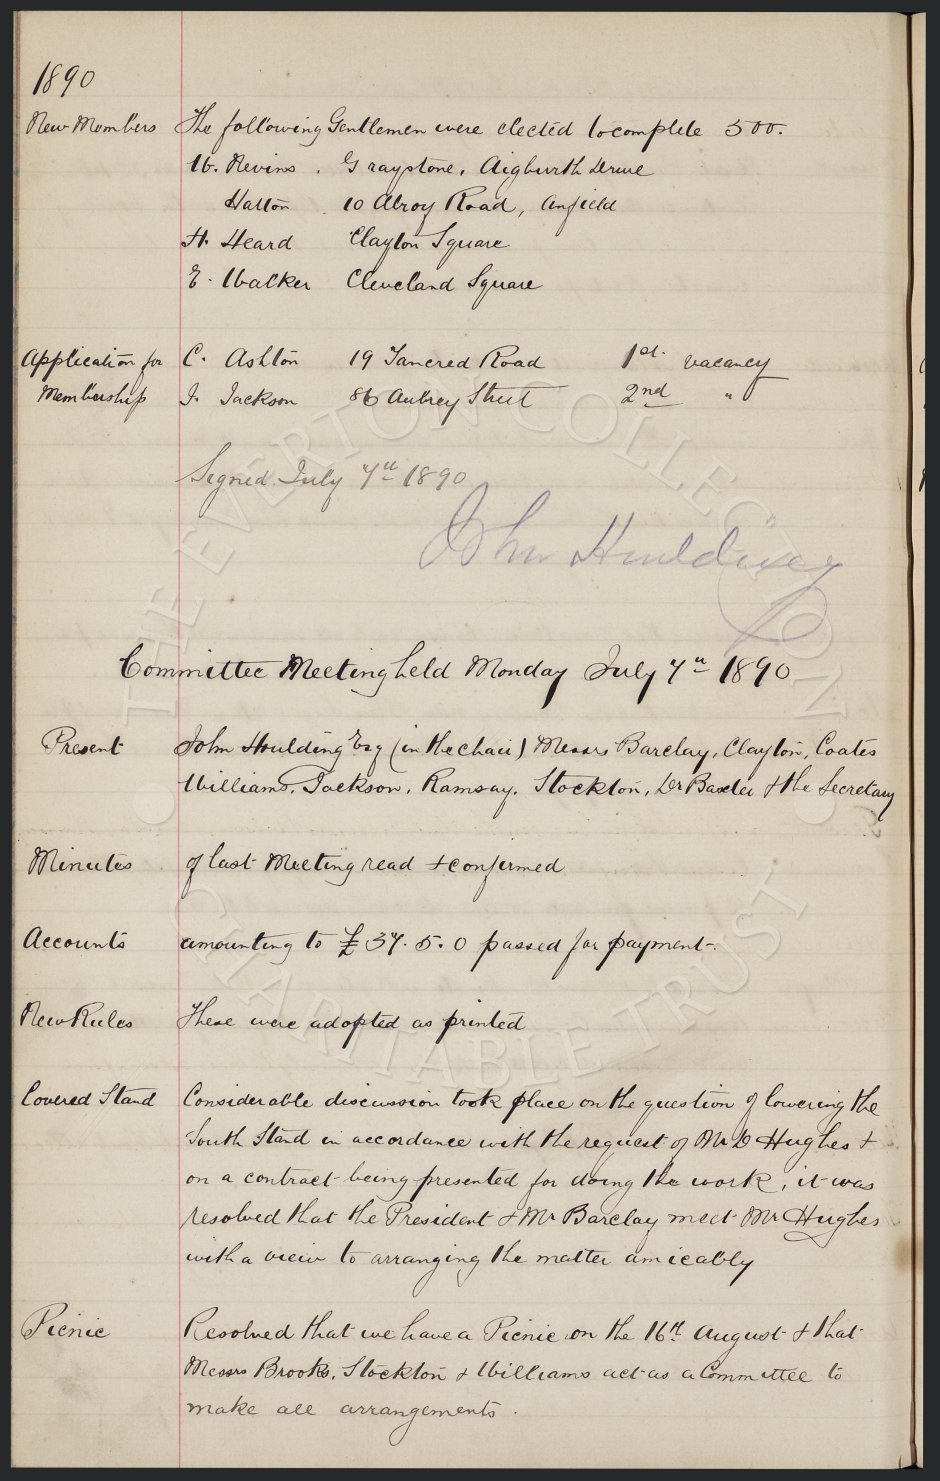 1890
New Members The following Gentlemen were elected to complete 500.
W. Nevins. Graystone, Aigburth Drive
Hatton 10 Alroy Road, Anfield
H. Heard Clayton Square
E. Walker Cleveland Square
Application for C. Ashton 19 Tancred Road 1st vacancy
Membership J. Jackson 86 Aubrey Street 2nd "
Signed July 7th 1890
John Houlding
Committee Meeting held Monday July 7th 1890
Present John Houlding Esq (in the chair) Messrs Barclay, Clayton, Coates
Williams, Jackson, Ramsay, Stockton, Dr Baxter & the Secretary
Minutes of last Meeting read & confirmed
Accounts amounting to £37.5.0 passed for payment.
New Rules These were adopted as printed
Covered Stand Considerable discussion took place on the question of lowering the
South Stand in accordance with the request of Mr D Hughes &
on a contract being presented for doing the work, it was
resolved that the President & Mr Barclay meet Mr Hughes
with a view to arranging the matter amicably
Picnic Resolved that we have a Picnic on the 16th August & that
Messrs Brooks, Stockton & Williams act as a Committee to
make all arrangements.
THE EVERTON COLLECTION
CHARITABLE TRUST